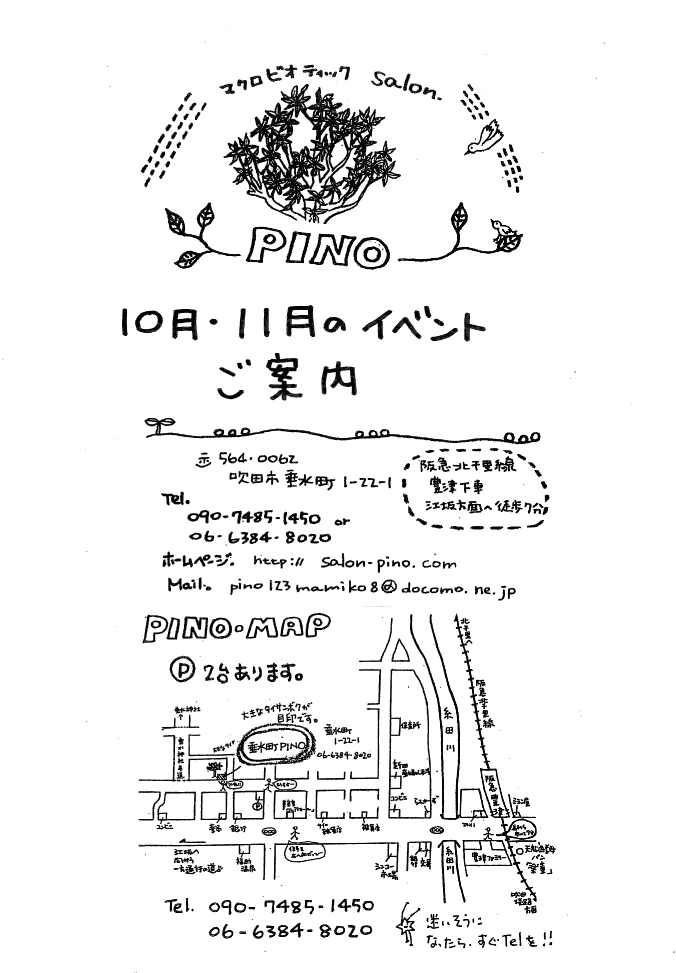 マクロビオティック Salon.
PINO
10月・11月のイベント
ご案内
〒564-0062
吹田市垂水町1-22-1
阪急北千里線
豊津下車
江坂方面へ徒歩7分
Tel.
090-7485-1450 or
06-6384-8020
ホームページ。 http:// salon-pino.com
Mail。 pino123mamiko8@docomo.ne.jp
PINO・MAP
Ⓟ 2台あります。
北千里へ
阪急北千里線
大きなタイサンボクが
目印です。
垂水神社
垂水町PINO
垂水町
1-22-1
06-6384-8020
糸田川
阪急豊津
コンビニ
コンビニ
Ⓟ
江坂へ
一方通行の道
糸田川
豊津ファミリー
パン
Tel. 090-7485-1450
06-6384-8020
迷いそうに
なったら、すぐTelを!!